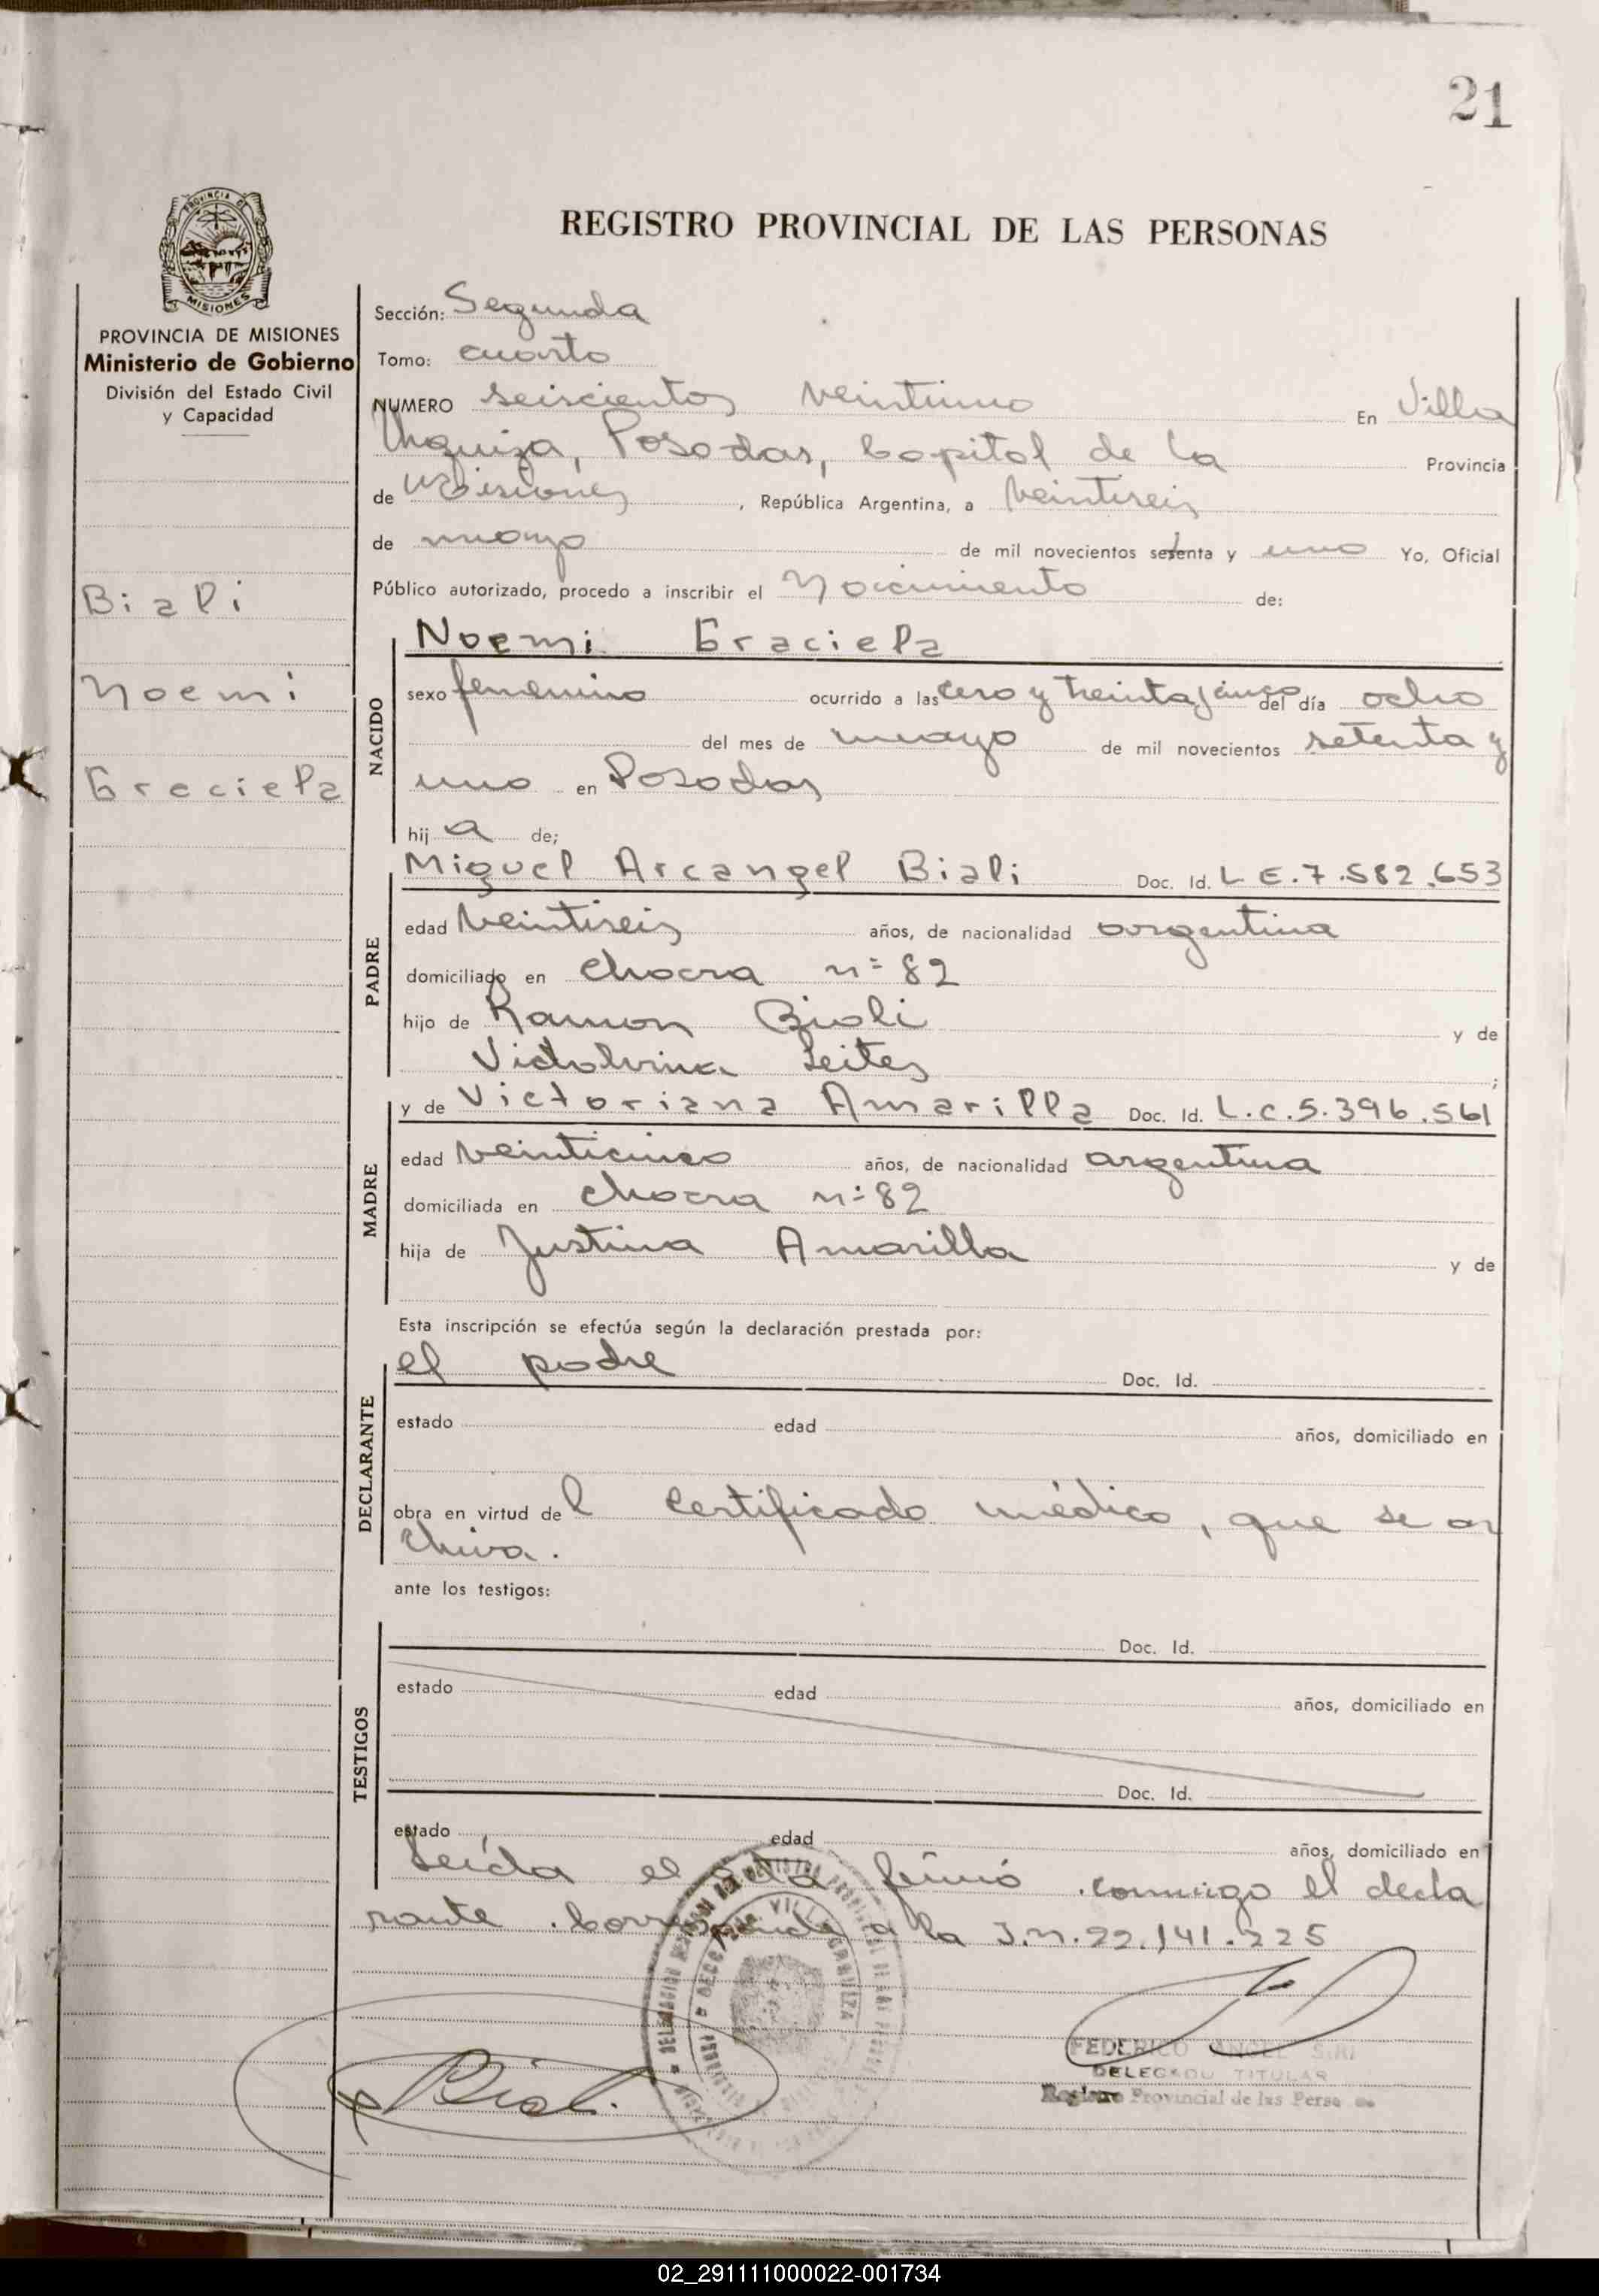 21
PROVINCIA DE
MISIONES
REGISTRO PROVINCIAL DE LAS PERSONAS
PROVINCIA DE MISIONES
Ministerio de Gobierno
División del Estado Civil
y Capacidad
Biali
Noemi
Graciela
Sección: Segunda
Tomo: cuarto
NUMERO seiscientos veintiuno En Villa
Urquiza, Posadas, Capital de la Provincia
de Misiones, República Argentina, a veintiseis
de mayo de mil novecientos setenta y uno Yo, Oficial
Público autorizado, procedo a inscribir el Nacimiento de:
NACIDO
Noemi Graciela
sexo femenino ocurrido a las cero y treinta y cinco del día ocho
del mes de mayo de mil novecientos setenta y
uno en Posadas
hij a de;
PADRE
Miguel Arcangel Biali Doc. Id. L E. 7.582.653
edad veintiseis años, de nacionalidad argentina
domiciliado en chacra n° 82
hijo de Ramon Biali y de
Leites;
MADRE
y de Victoriana Amarilla Doc. Id. L.C. 5.396.561
edad veinticinco años, de nacionalidad argentina
domiciliada en chacra n° 82
hija de Justina Amarilla y de
Esta inscripción se efectúa según la declaración prestada por:
DECLARANTE
el padre Doc. Id.
estado edad años, domiciliado en
obra en virtud de l certificado médico, que se ar
chiva.
ante los testigos:
TESTIGOS
Doc. Id.
estado edad años, domiciliado en
Doc. Id.
estado edad años, domiciliado en
Leída el acta firmó conmigo el decla
rante. Corresponde a la I.N. 22.141.225
VILLA URQUIZA
Biali
FEDERICO ANGEL SIRI
DELEGADO TITULAR
Registro Provincial de las Personas
02_291111000022-001734